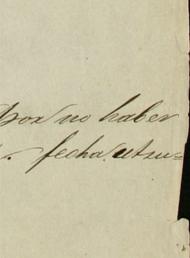 Por no haber
fecha utsu=